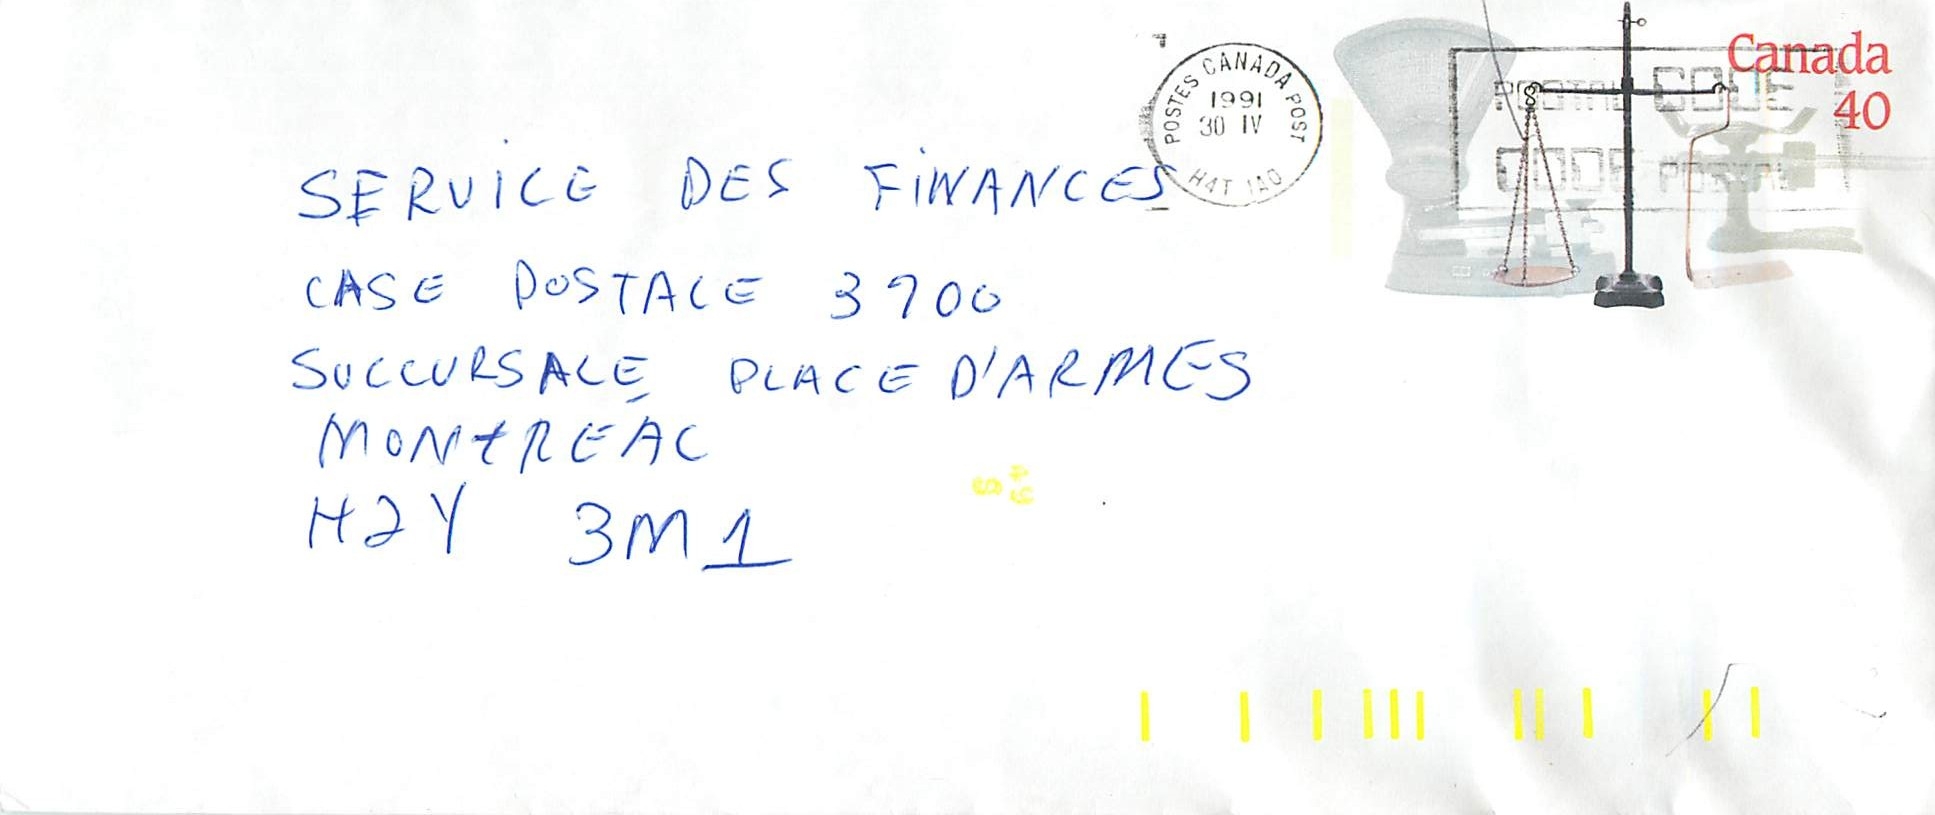 Canada
40
POSTES CANADA POST
1991
30 IV
H4T 1A0
POSTAL CODE
CODE POSTAL
SERVICE DES FINANCES
CASE POSTALE 3900
SUCCURSALE PLACE D'ARMES
MONTRÉAL
H2Y 3M1